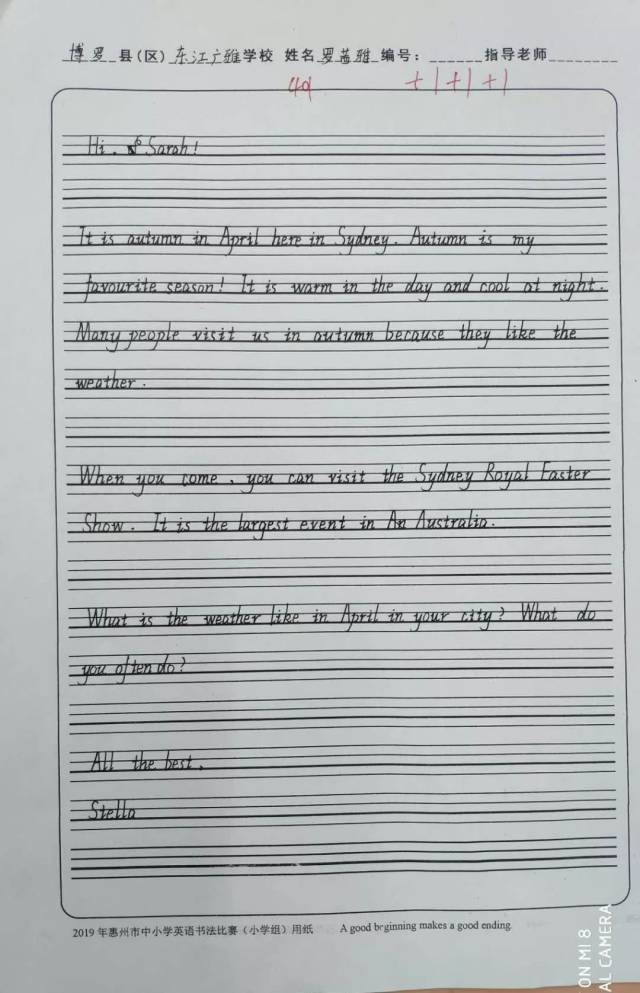 博罗县(区)东江广雅学校 姓名罗茜雅编号：______指导老师________
+1+1+1
Hi. Sarah!
It is autumn in April here in Sydney. Autumn is my
favourite season! It is warm in the day and cool at night.
Many people visit us in autumn because they like the
weather.
When you come, you can visit the Sydney Royal Easter
Show. It is the largest event in An Australia.
What is the weather like in April in your city? What do
you often do?
All the best,
Stella
2019年惠州市中小学英语书法比赛(小学组)用纸 A good beginning makes a good ending.
ON MI 8
AL CAMERA